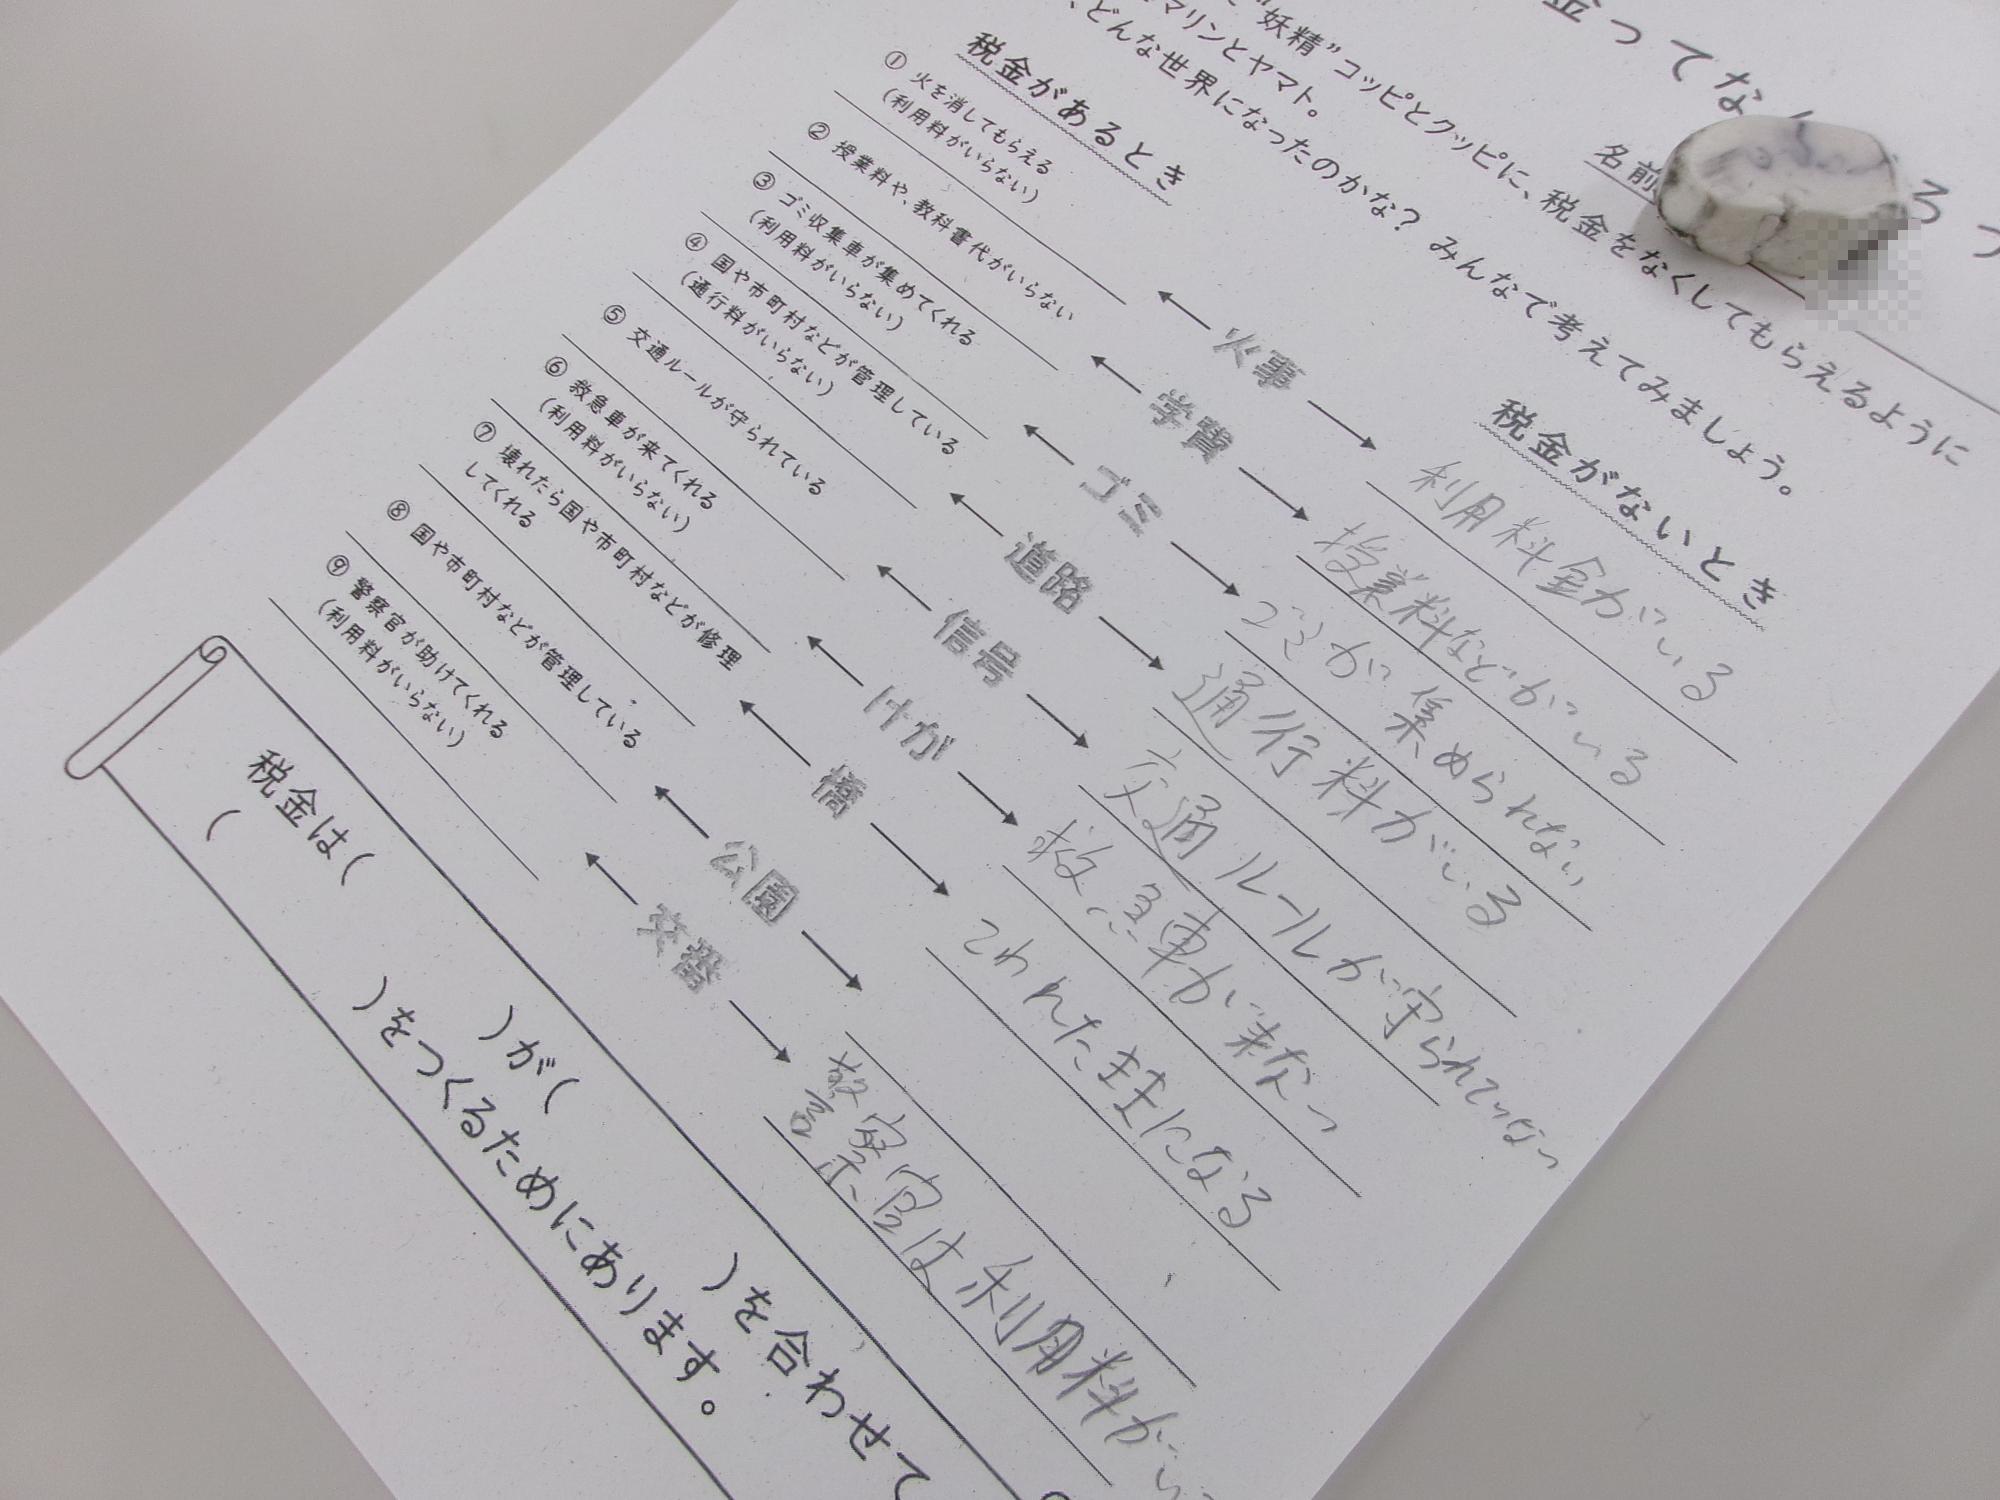 金ってな
名前
"妖精"コッピとクッピに、税金をなくしてもらえるように
マリンとヤマト。
、どんな世界になったのかな？ みんなで考えてみましょう。
税金があるとき
税金がないとき
① 火を消してもらえる
(利用料がいらない)
火事
利用料金がいる
② 授業料や、教科書代がいらない
学費
授業料などがいる
③ ゴミ収集車が集めてくれる
(利用料がいらない)
ゴミ
ゴミが集められない
④ 国や市町村などが管理している
(通行料がいらない)
道路
通行料がいる
⑤ 交通ルールが守られている
信号
交通ルールが守られてない
⑥ 救急車が来てくれる
(利用料がいらない)
けが
救急車が来ない
⑦ 壊れたら国や市町村などが修理
してくれる
橋
こわれたままになる
⑧ 国や市町村などが管理している
公園
⑨ 警察官が助けてくれる
(利用料がいらない)
交番
警察官は利用料が
税金は( )が( )を合わせて
( )をつくるためにあります。